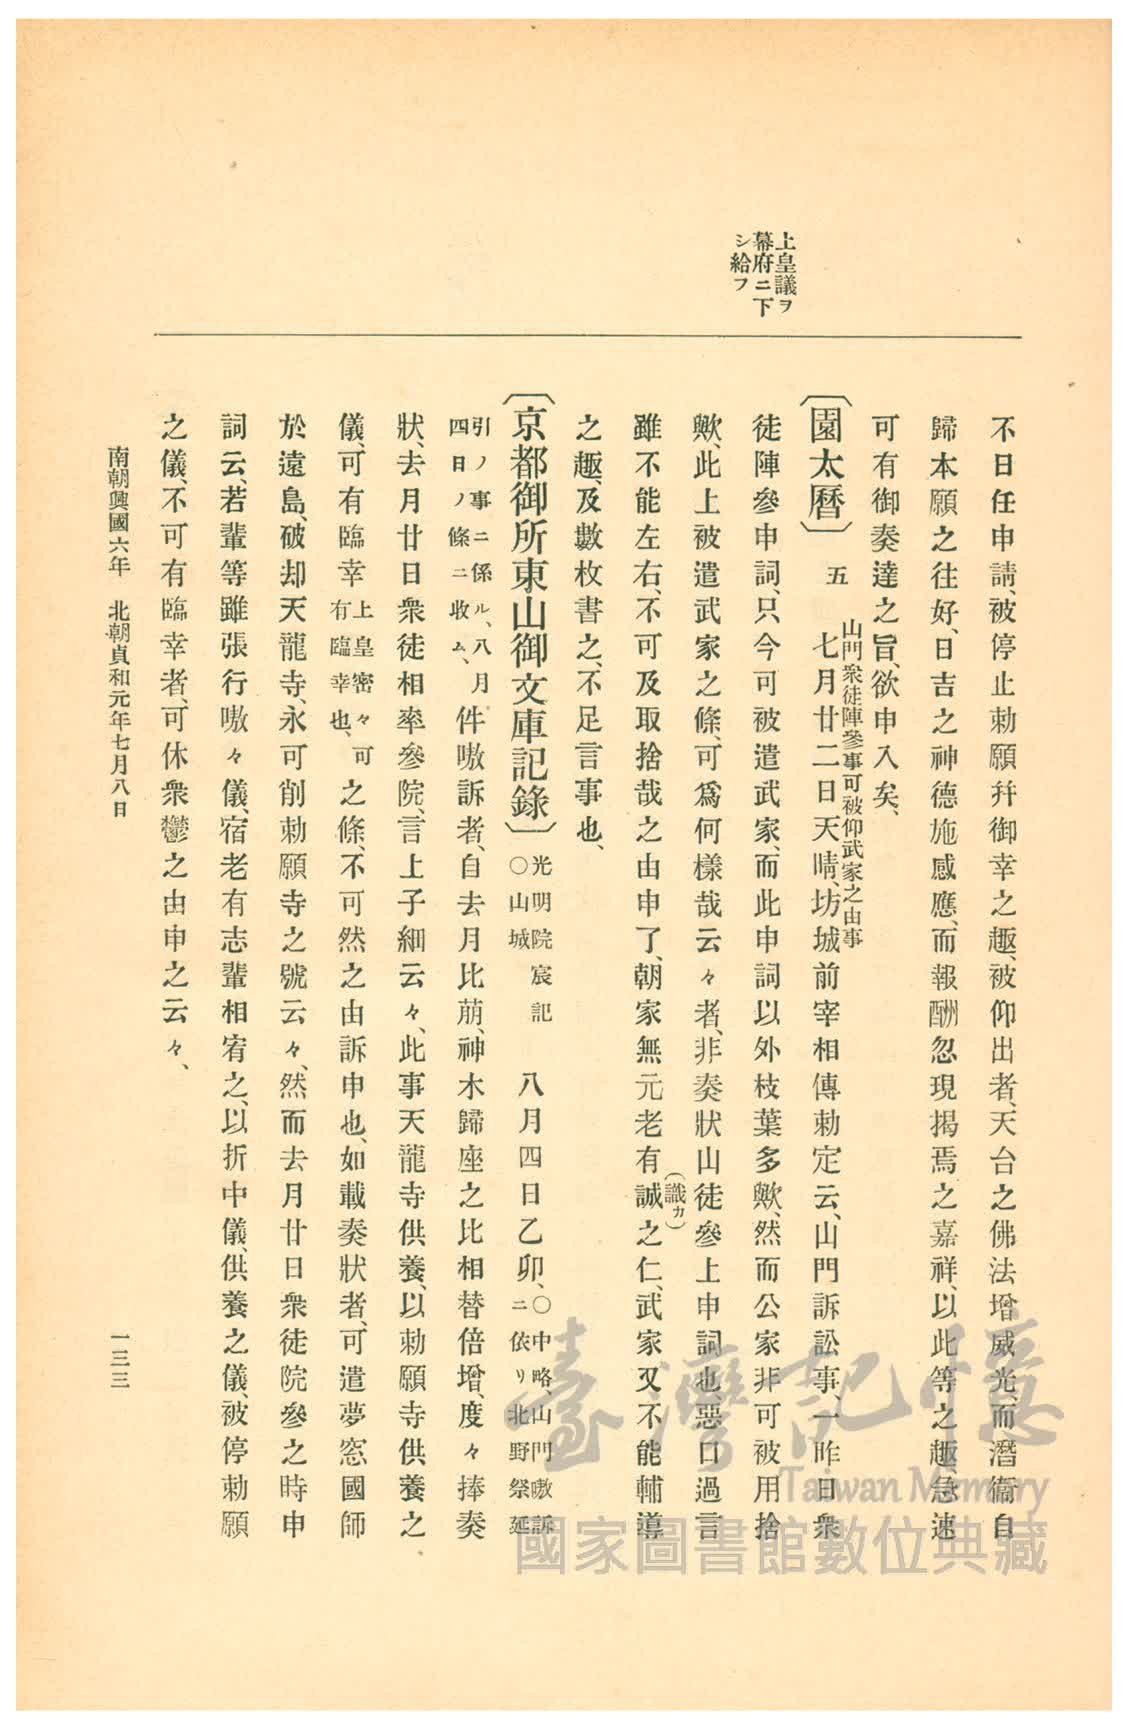 上皇議ヲ
幕府ニ下
シ給フ
不日任申請、被停止勅願幷御幸之趣、被仰出者、天台之佛法增威光、而潛衞自
歸本願之往好、日吉之神德施感應、而報酬忽現揭焉之嘉祥、以此等之趣、急速
可有御奏達之旨、欲申入矣、
〔園太曆〕五
山門衆徒陣參事可被仰武家之由事
七月廿二日天晴、坊城前宰相傳勅定云、山門訴訟事、一昨日衆
徒陣參申詞、只今可被遣武家、而此申詞以外枝葉多歟、然而公家非可被用捨
歟、此上被遣武家之條、可爲何樣哉云々者、非奏狀山徒參上申詞也、惡口過言
雖不能左右、不可及取捨哉之由申了、朝家無元老有誠(識カ)之仁、武家又不能輔導
之趣、及數枚書之、不足言事也、
〔京都御所東山御文庫記錄〕
光明院宸記
○山城
八月四日乙卯、
○中略、山門嗷訴
ニ依リ北野祭延
引ノ事ニ係ル、八月
四日ノ條ニ收ム、
件嗷訴者、自去月比萠、神木歸座之比相替倍增、度々捧奏
狀、去月廿日衆徒相率參院、言上子細云々、此事天龍寺供養、以勅願寺供養之
儀、可有臨幸
上皇密々可
有臨幸也、
之條、不可然之由訴申也、如載奏狀者、可遣夢窓國師
於遠島、破却天龍寺、永可削勅願寺之號云々、然而去月廿日衆徒院參之時申
詞云、若輩等雖張行嗷々儀、宿老有志輩相宥之、以折中儀、供養之儀、被停勅願
之儀、不可有臨幸者、可休衆鬱之由申之云々、
南朝興國六年 北朝貞和元年七月八日
一三三
臺灣記憶
Taiwan Memory
國家圖書館數位典藏